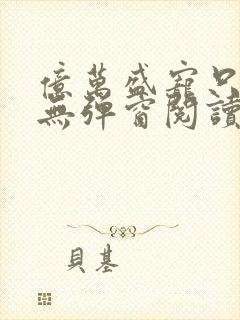 億萬盛寵只
無彈窗閱讀
貝基